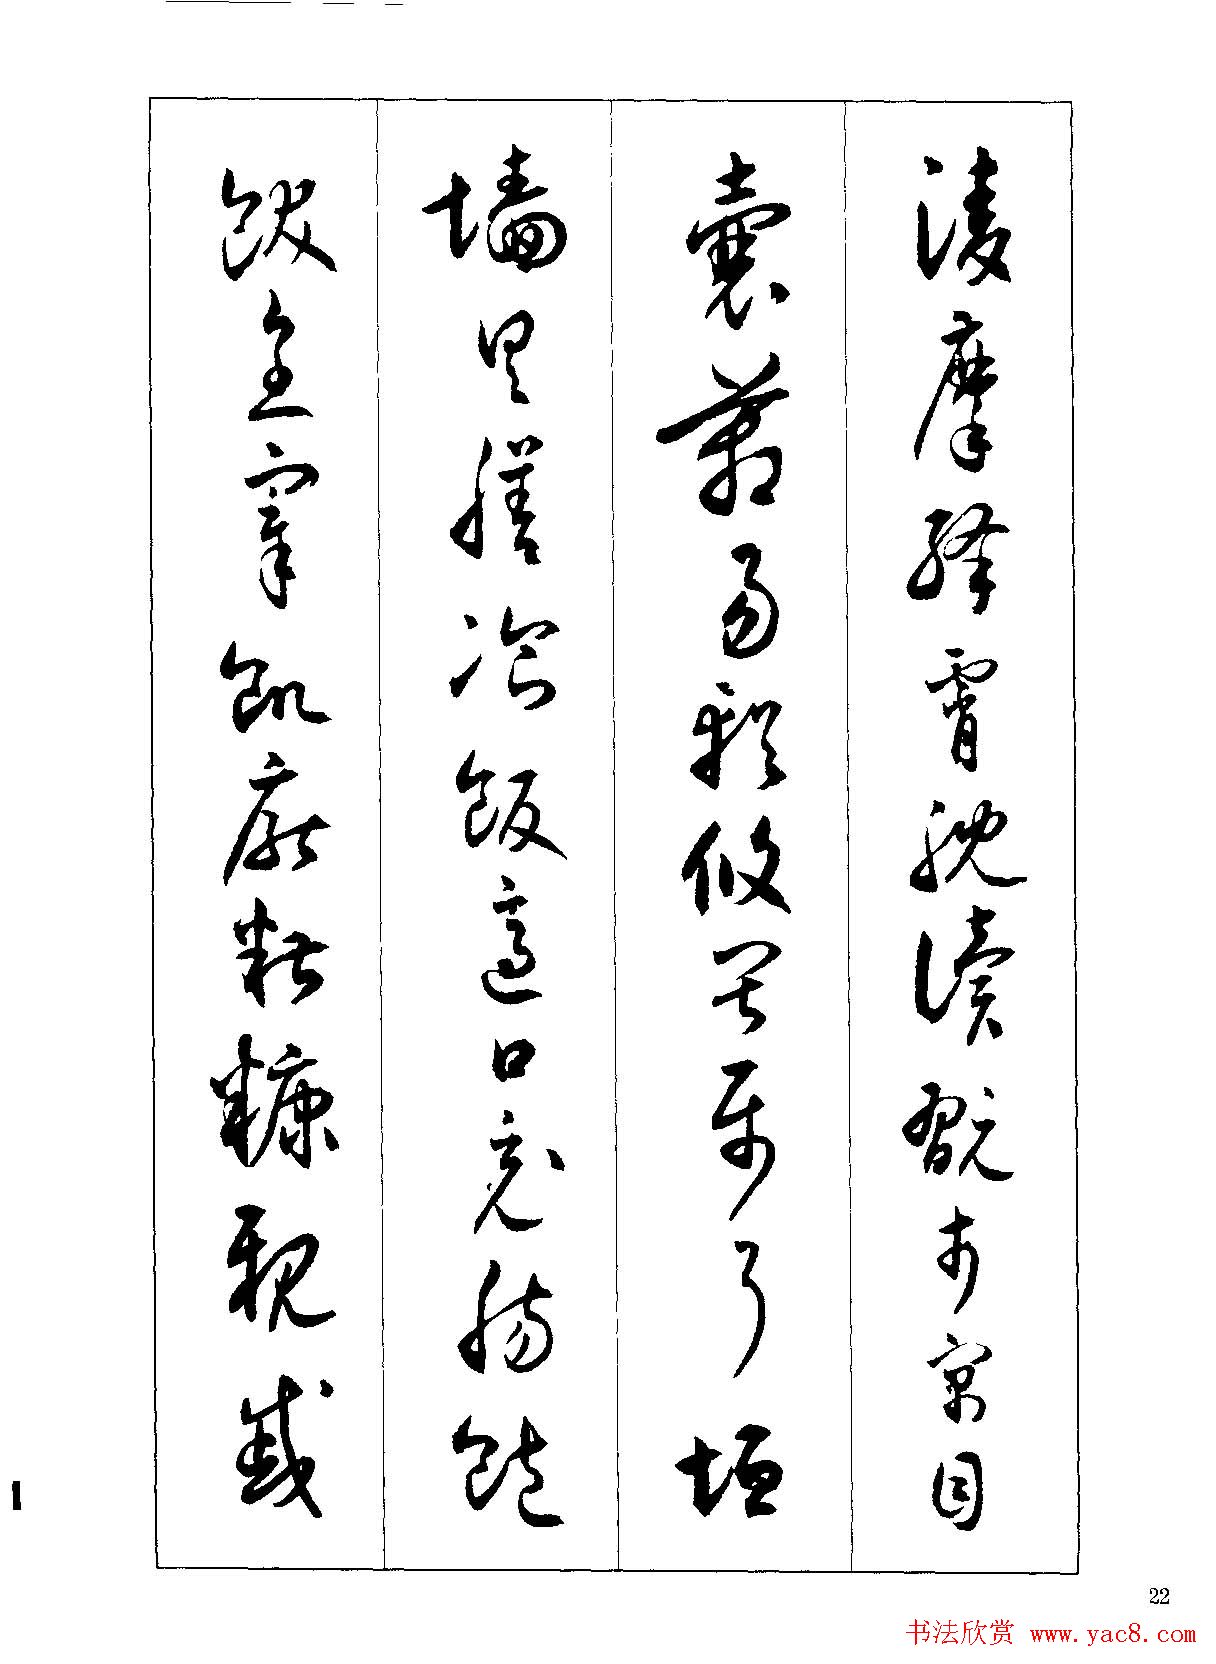 凌摩絳霄耽讀翫市寓目
囊葙易輶攸畏屬耳垣
墻具膳飡飯適口充腸飽
飫烹宰飢厭糟糠親戚
22
书法欣赏 www.yac8.com